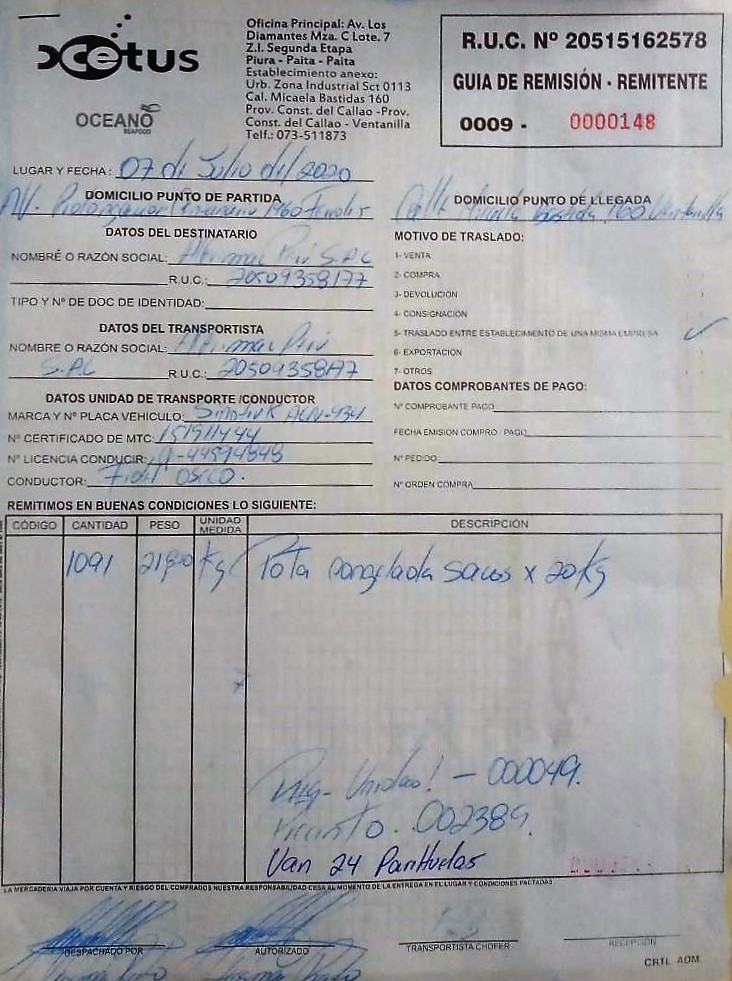 cetus
OCEANO
SEAFOOD
Oficina Principal: Av. Los
Diamantes Mza. C Lote. 7
Z.I. Segunda Etapa
Piura - Paita - Paita
Establecimiento anexo:
Urb. Zona Industrial Sct 0113
Cal. Micaela Bastidas 160
Prov. Const. del Callao -Prov.
Const. del Callao - Ventanilla
Telf.: 073-511873
R.U.C. Nº 20515162578
GUIA DE REMISIÓN - REMITENTE
0009 - 0000148
LUGAR Y FECHA: 07 de Julio del 2020
DOMICILIO PUNTO DE PARTIDA
AV.
DATOS DEL DESTINATARIO
NOMBRÉ O RAZÓN SOCIAL: S.A.C
R.U.C.: 20509358177
TIPO Y Nº DE DOC DE IDENTIDAD:
DATOS DEL TRANSPORTISTA
NOMBRE O RAZÓN SOCIAL:
S.A.C R.U.C.:
DATOS UNIDAD DE TRANSPORTE /CONDUCTOR
MARCA Y Nº PLACA VEHICULO:
Nº CERTIFICADO DE MTC: 151911444
Nº LICENCIA CONDUCIR:
CONDUCTOR: Fidel
DOMICILIO PUNTO DE LLEGADA
Calle 160 Ventanilla
MOTIVO DE TRASLADO:
1- VENTA
2- COMPRA
3- DEVOLUCIÓN
4- CONSIGNACIÓN
5- TRASLADO ENTRE ESTABLECIMIENTO DE UNA MISMA EMPRESA ✓
6- EXPORTACIÓN
7- OTROS
DATOS COMPROBANTES DE PAGO:
Nº COMPROBANTE PAGO
FECHA EMISION COMPRO / PAGO
Nº PEDIDO
Nº ORDEN COMPRA
REMITIMOS EN BUENAS CONDICIONES LO SIGUIENTE:
CÓDIGO CANTIDAD PESO UNIDAD MEDIDA DESCRIPCIÓN
1091 Kg Pota congelada sacos x 20 Kg
000049.
Precinto. 002389.
Van 24 Parihuelas
LA MERCADERIA VIAJA POR CUENTA Y RIESGO DEL COMPRADOS NUESTRA RESPONSABILIDAD CESA AL MOMENTO DE LA ENTREGA EN EL LUGAR Y CONDICIONES PACTADAS
DESPACHADO POR
AUTORIZADO
TRANSPORTISTA CHOFER
RECEPCIÓN
CRTL ADM